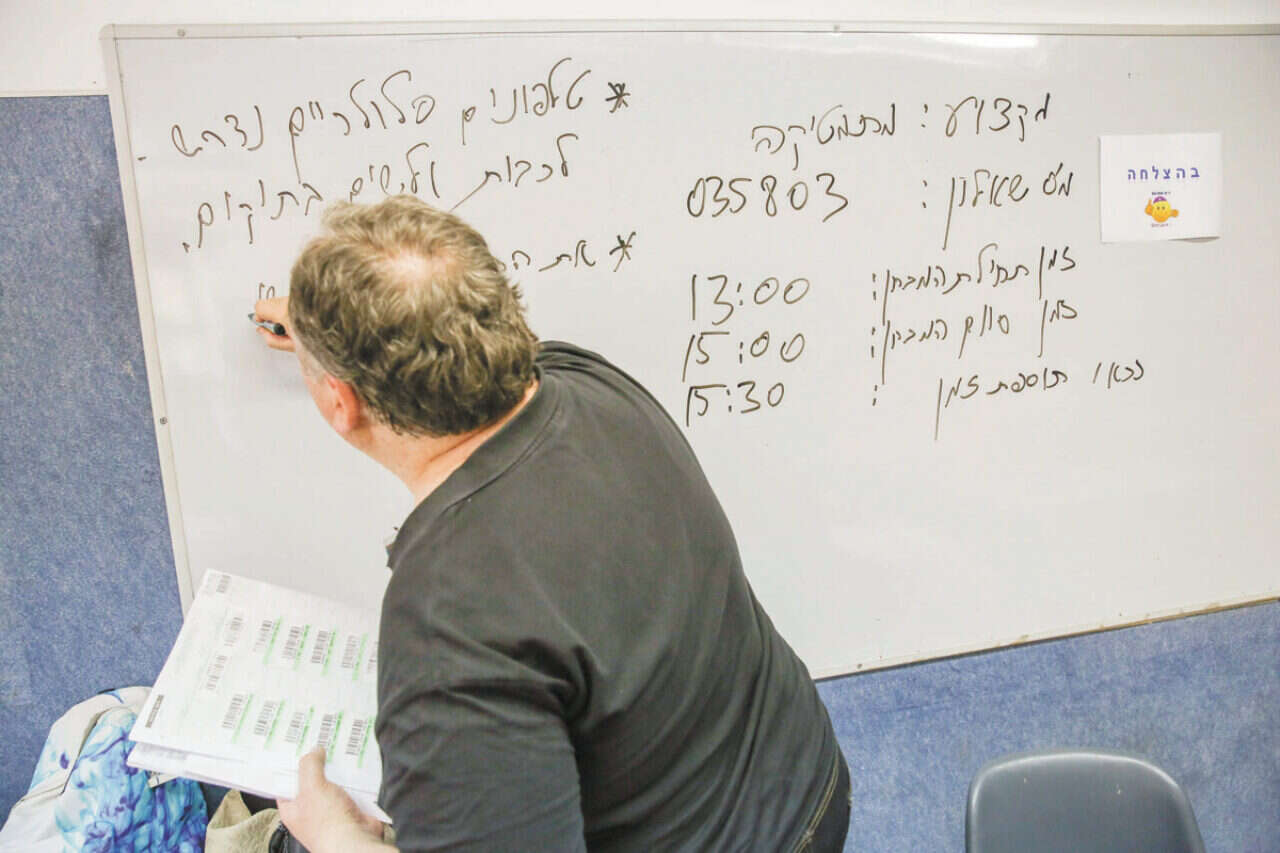 מקצוע : מתמטיקה
מס' שאלון : 035803
זמן תחילת המבחן : 13:00
זמן סיום המבחן : 15:00
זכאי תוספת זמן : 15:30
בהצלחה
* טלפונים סלולריים נדרש
לכבות ולשים בתיקים.
* את